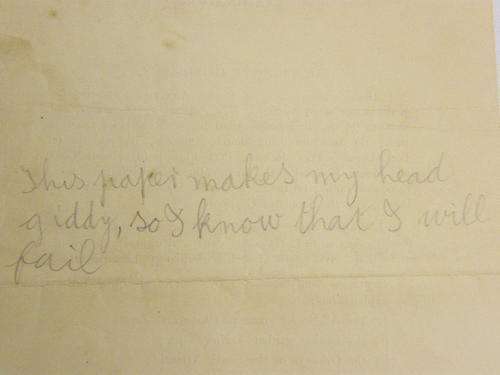 This paper makes my head
giddy, so I know that I will
fail